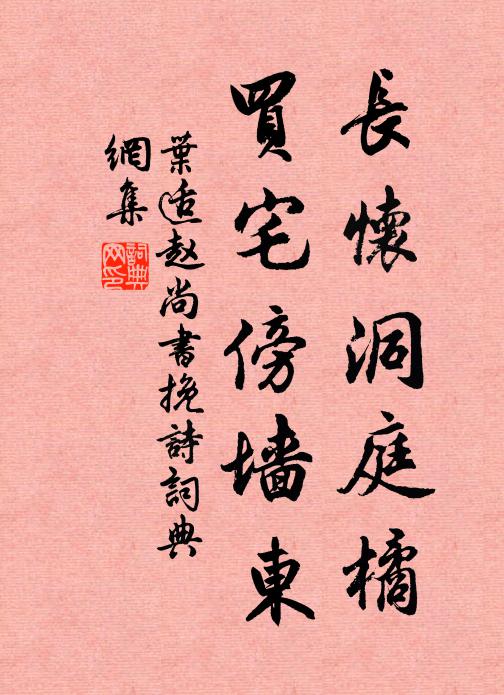 長懷洞庭橘
買宅傍墻東
葉适赵尚書挽詩詞典
網集
詞典
网印